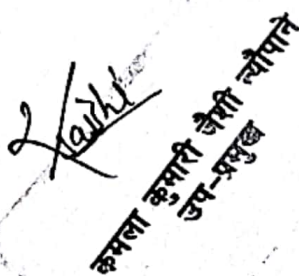 कमला कुमारी जैशी न्यौपाने
उप-प्रमुख